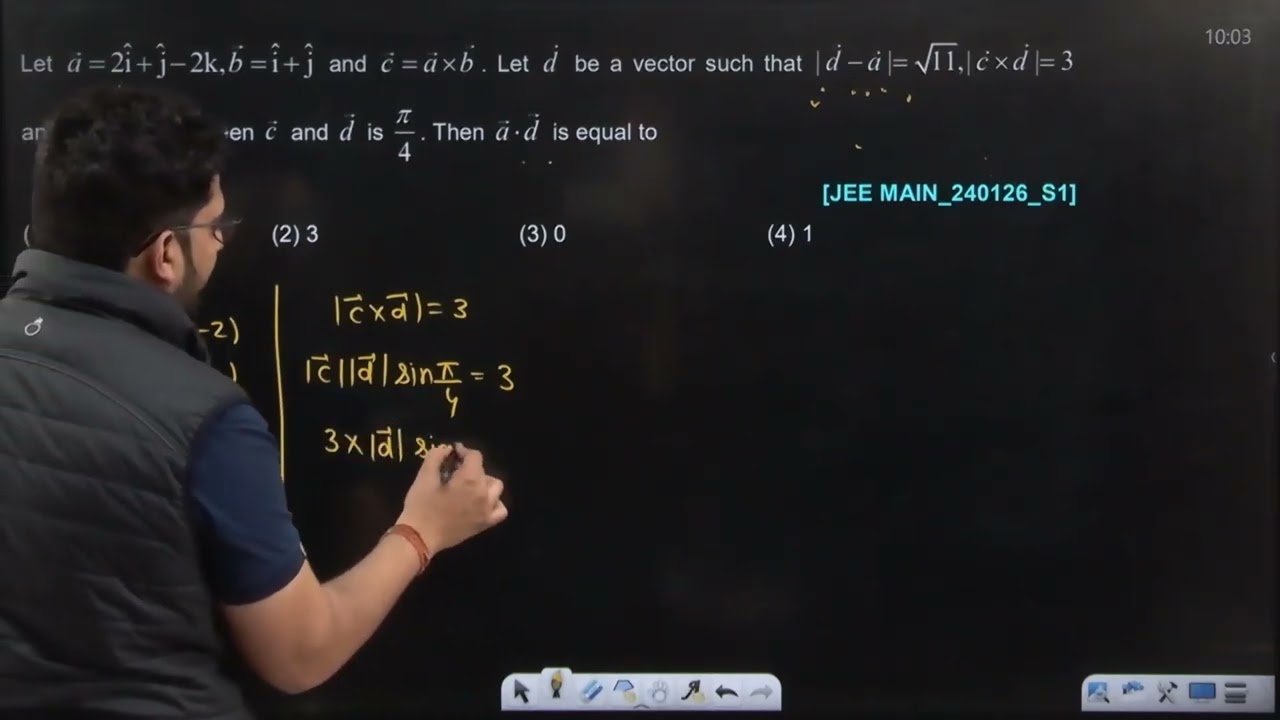 10:03
Let a⃗ = 2î + ĵ − 2k, b⃗ = î + ĵ and c⃗ = a⃗ × b⃗ . Let d⃗ be a vector such that | d⃗ − a⃗ | = √11, | c⃗ × d⃗ | = 3
en c⃗ and d⃗ is π/4 . Then a⃗ · d⃗ is equal to
[JEE MAIN_240126_S1]
(2) 3 (3) 0 (4) 1
|c⃗ × d⃗| = 3
−2)
|c⃗||d⃗| sin π/4 = 3
)
3 × |d⃗|